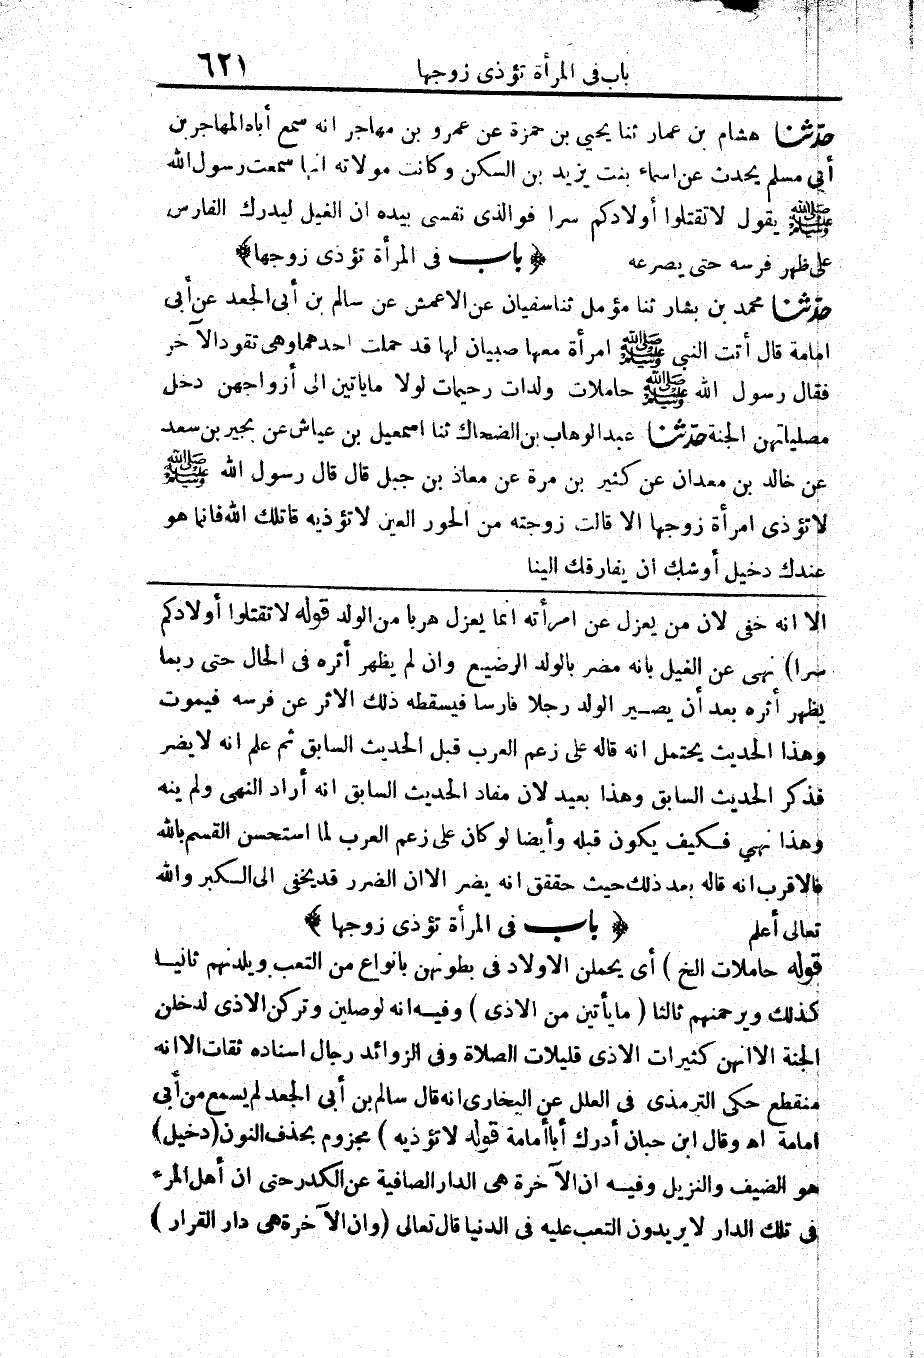 باب في المرأة تؤذى زوجها ٦٢١
حدّثنا هشام بن عمار ثنا يحيى بن حمزة عن عمرو بن مهاجر انه سمع أباه المهاجر بن
أبي مسلم يحدث عن اسماء بنت يزيد بن السكن وكانت مولاته انها سمعت رسول الله
ﷺ يقول لا تقتلوا أولادكم سرا فوالذى نفسى بيده ان الغيل ليدرك الفارس
على ظهر فرسه حتى يصرعه ﴿ باب فى المرأة تؤذى زوجها ﴾
حدّثنا محمد بن بشار ثنا مؤمل ثنا سفيان عن الاعمش عن سالم بن أبى الجعد عن أبى
امامة قال أتت النبي ﷺ امرأة معها صبيان لها قد حملت احدهما وهى تقود الآخر
فقال رسول الله ﷺ حاملات والدات رحيمات لولا ما يأتين الى أزواجهن دخل
مصلياتهن الجنة حدّثنا عبد الوهاب بن الضحاك ثنا اسمعيل بن عياش عن بحير بن سعد
عن خالد بن معدان عن كثير بن مرة عن معاذ بن جبل قال قال رسول الله ﷺ
لا تؤذى امرأة زوجها الا قالت زوجته من الحور العين لا تؤذيه قاتلك الله فانما هو
عندك دخيل أوشك ان يفارقك الينا
الا انه خفى لان من يعزل عن امرأته انما يعزل هربا من الولد قوله لا تقتلوا أولادكم
سرا) نهى عن الغيل بانه مضر بالولد الرضيع وان لم يظهر أثره فى الحال حتى ربما
يظهر أثره بعد أن يصير الولد رجلا فارسا فيسقطه ذلك الاثر عن فرسه فيموت
وهذا الحديث يحتمل انه قاله على زعم العرب قبل الحديث السابق ثم علم انه لا يضر
فذكر الحديث السابق وهذا بعيد لان مفاد الحديث السابق انه أراد النهى ولم ينه
وهذا نهي فكيف يكون قبله وأيضا لو كان على زعم العرب لما استحسن القسم بالله
فالاقرب انه قاله بعد ذلك حيث حقق انه يضر الا ان الضرر قد يخفى الى الكبر والله
تعالى أعلم ﴿ باب فى المرأة تؤذى زوجها ﴾
قوله حاملات الخ ) أى يحملن الاولاد فى بطونهن بانواع من التعب ويلدنهم ثانيا
كذلك ويرحمنهم ثالثا ( ما يأتين من الاذى ) وفيه انه لو صلين وتركن الاذى لدخلن
الجنة الا انهن كثيرات الاذى قليلات الصلاة وفى الزوائد رجال اسناده ثقات الا انه
منقطع حكى الترمذى فى العلل عن البخارى انه قال سالم بن أبي الجعد لم يسمع من أبي
امامة اه وقال ابن حبان أدرك أبا أمامة قوله لا تؤذيه ) مجزوم بحذف النون (دخيل)
هو الضيف والنزيل وفيه ان الآخرة هى الدار الصافية عن الكدر حتى ان أهل المرء
فى تلك الدار لا يريدون التعب عليه فى الدنيا قال تعالى (وان الآخرة هى دار القرار )